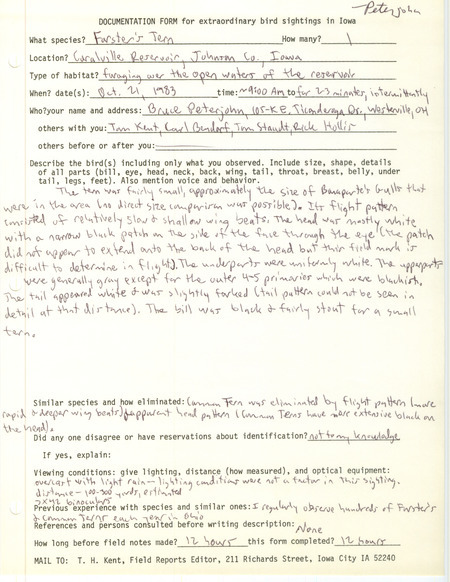 Peterjohn
DOCUMENTATION FORM for extraordinary bird sightings in Iowa
What species? Forster's Tern How many? 1
Location? Coralville Reservoir, Johnson Co., Iowa
Type of habitat? foraging over the open waters of the reservoir
When? date(s): Oct. 21, 1983 time: ~9:00 AM to for 23 minutes, intermittently
Who? your name and address: Bruce Peterjohn, 105-K E. Ticonderoga Dr., Westerville, OH
others with you: Tom Kent, Carl Bendorf, Tom Staudt, Rick Hollis
others before or after you:
Describe the bird(s) including only what you observed. Include size, shape, details
of all parts (bill, eye, head, neck, back, wing, tail, throat, breast, belly, under
tail, legs, feet). Also mention voice and behavior.
The tern was fairly small, approximately the size of Bonaparte's Gulls that
were in the area (no direct size comparison was possible). Its flight pattern
consisted of relatively slow & shallow wing beats. The head was mostly white
with a narrow black patch on the side of the face through the eye (the patch
did not appear to extend onto the back of the head but this field mark is
difficult to determine in flight). The underparts were uniformly white. The upperparts
were generally gray except for the outer 4-5 primaries which were blackish.
The tail appeared white & was slightly forked (tail pattern could not be seen in
detail at that distance). The bill was black & fairly stout for a small
tern.
Similar species and how eliminated: Common Tern was eliminated by flight pattern (more
rapid & deeper wing beats) & apparent head pattern (Common Terns have more extensive black on
the head).
Did any one disagree or have reservations about identification? not to my knowledge
If yes, explain:
Viewing conditions: give lighting, distance (how measured), and optical equipment:
overcast with light rain – lighting conditions were not a factor in this sighting.
distance – 100-300 yards, estimated
7x42 binoculars
Previous experience with species and similar ones: I regularly observe hundreds of Forster's
& Common Terns each year in Ohio
References and persons consulted before writing description: None
How long before field notes made? 12 hours this form completed? 12 hours
MAIL TO: T. H. Kent, Field Reports Editor, 211 Richards Street, Iowa City IA 52240